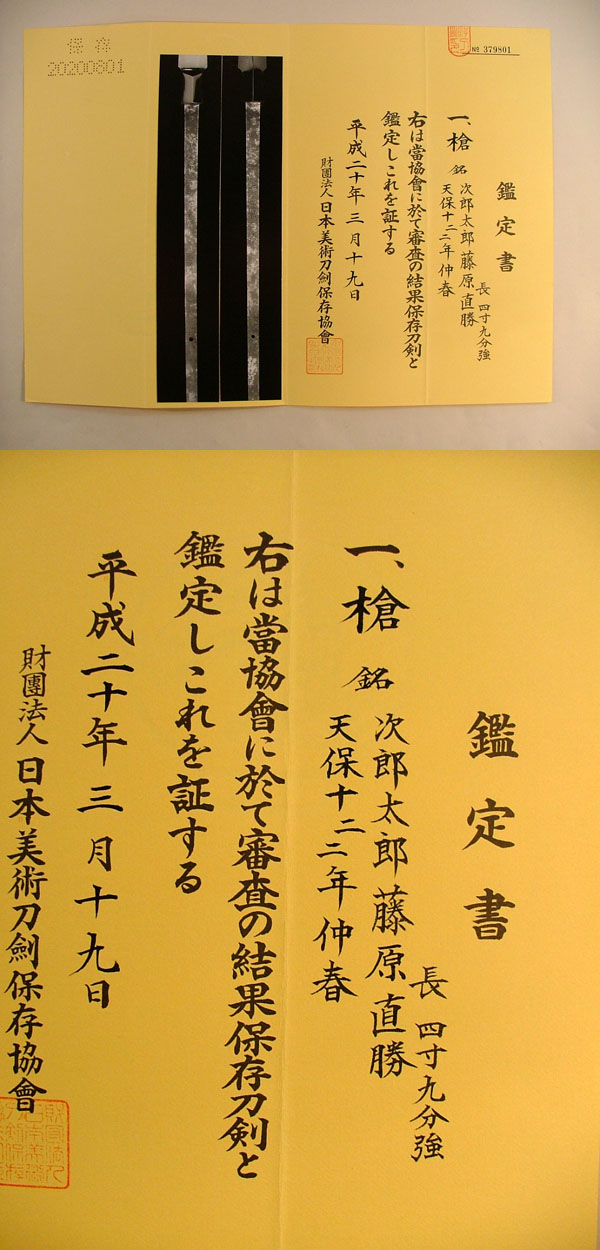 保存
20200801
№ 379801
鑑定書
一、槍 銘 次郎太郎藤原直勝
天保十二二年仲春
長 四寸九分強
右は當協會に於て審査の結果保存刀剣と
鑑定しこれを証する
平成二十年三月十九日
財團法人日本美術刀劍保存協會
鑑定書
長 四寸九分強
一、槍 銘 次郎太郎藤原直勝
天保十二二年仲春
右は當協會に於て審査の結果保存刀剣と
鑑定しこれを証する
平成二十年三月十九日
財團法人日本美術刀劍保存協會